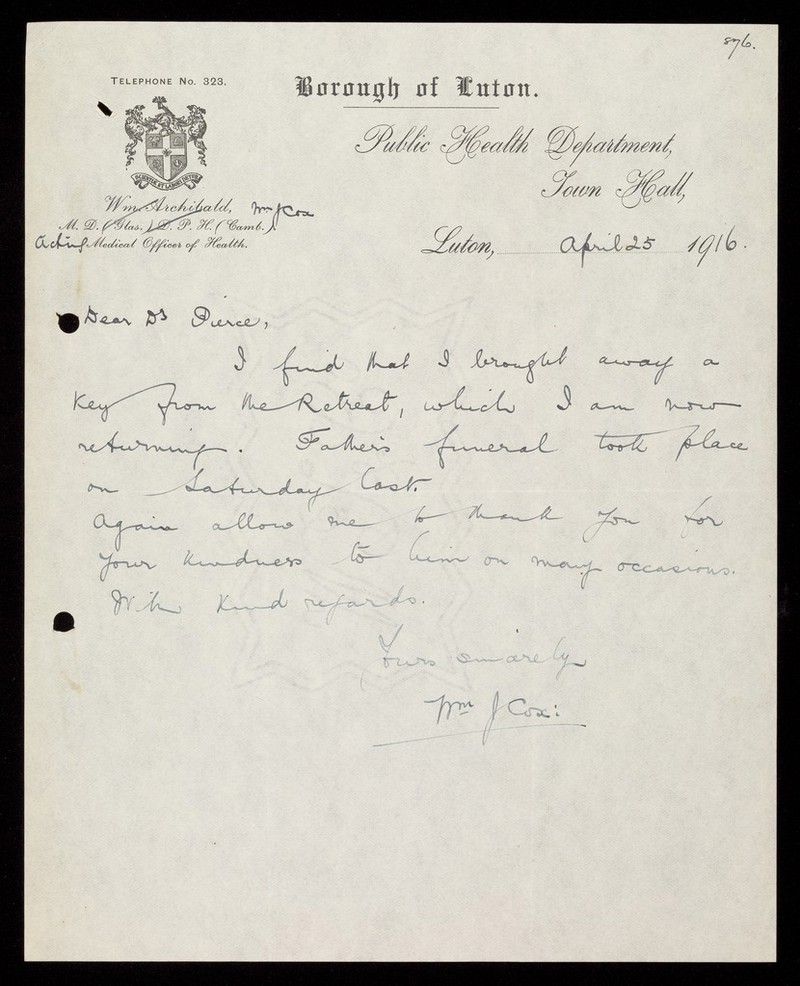 876.
TELEPHONE No. 323.
Borough of Luton.
Public Health Department,
Town Hall,
SCIENTIÆ ET LABORI DETUR
Wm. Archibald, Wm J Cox
M. D. (Glas.) D. P. H. (Camb.).
Acting Medical Officer of Health.
Luton, April 25 1916.
Dear Dr Pierce,
I find that I brought away a
key from the Retreat, which I am now
returning. Father's funeral took place
on Saturday last.
Again allow me to thank you for
your kindness to him on many occasions.
With kind regards.
Yours sincerely
Wm J Cox: